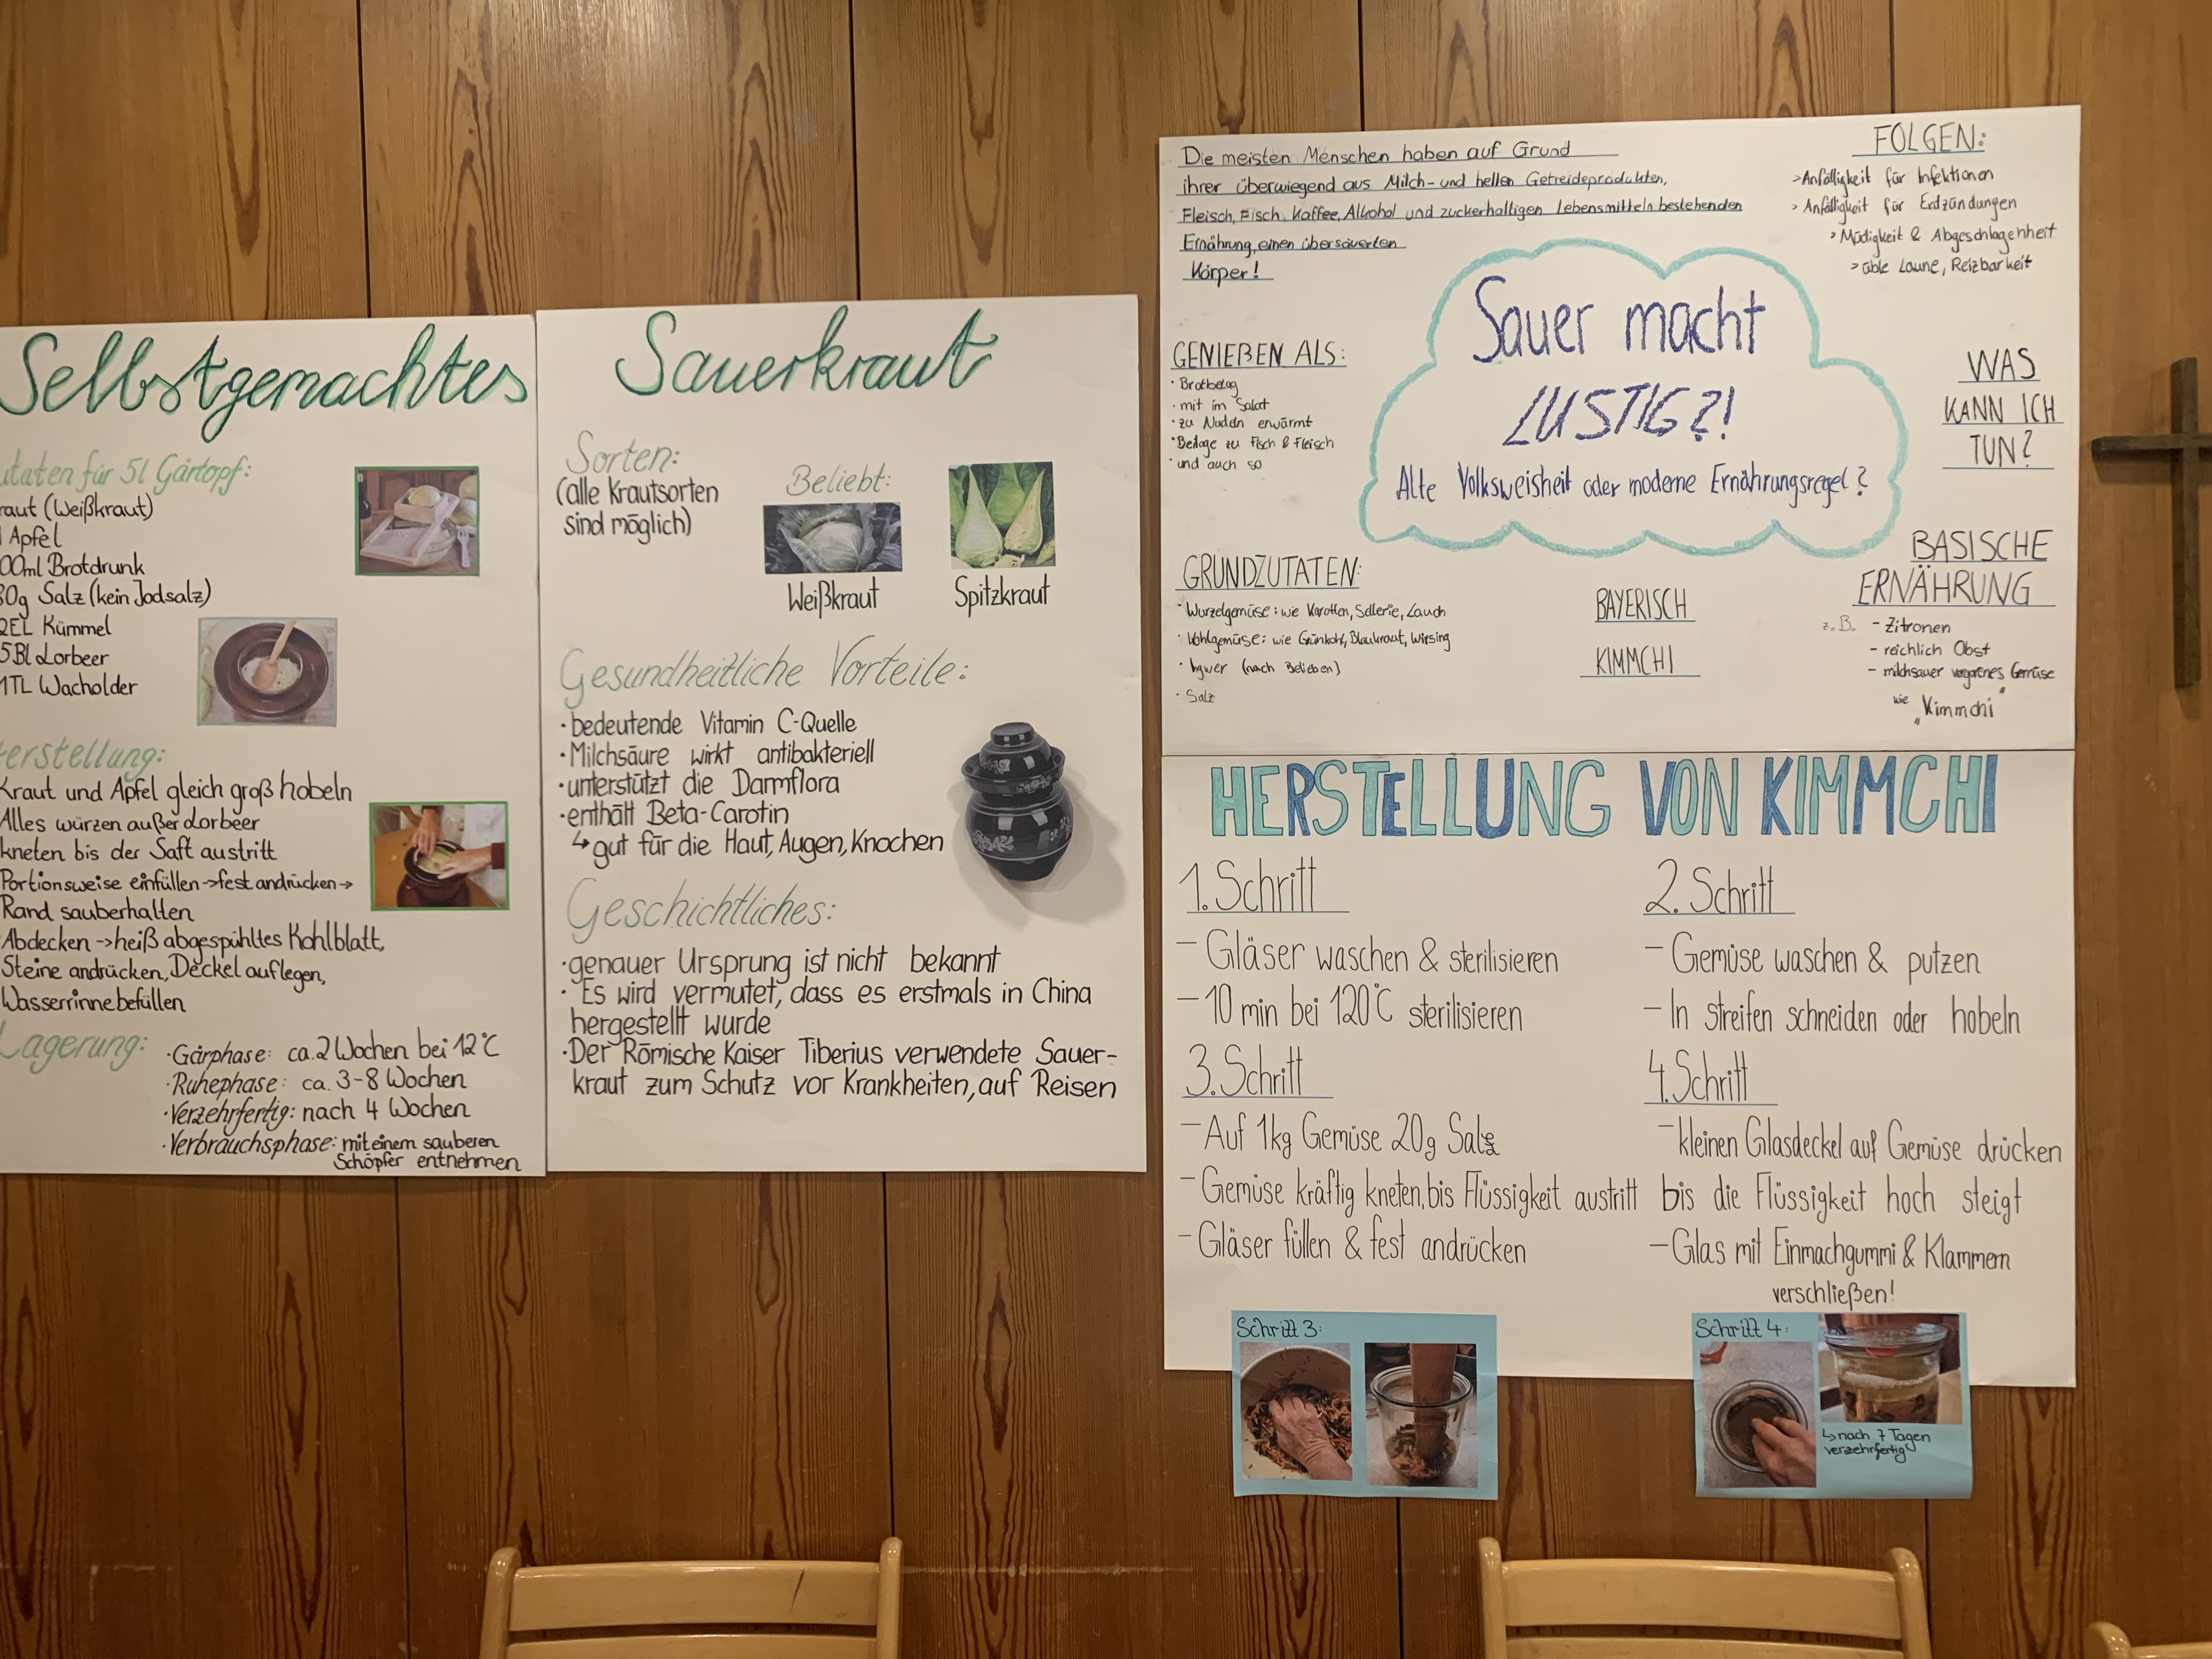 Selbstgemachtes
für 5l Gärtopf:
(Weißkraut)
Apfel
Brotdrunk
Salz (kein Jodsalz)
2EL Kümmel
5Bl Lorbeer
1TL Wacholder
Kraut und Apfel gleich groß hobeln
Alles würzen außer Lorbeer
kneten bis der Saft austritt
Portionsweise einfüllen → fest andrücken →
Rand sauberhalten
Abdecken → heiß abgespühltes Kohlblatt,
Steine andrücken, Deckel auflegen,
Wasserrinne befüllen
Lagerung:
· Gärphase: ca. 2 Wochen bei 12°C
· Ruhephase: ca. 3-8 Wochen
· Verzehrfertig: nach 4 Wochen
· Verbrauchsphase: mit einem sauberen
Schöpfer entnehmen
Sauerkraut
Sorten:
(alle Krautsorten
sind möglich)
Beliebt:
Weißkraut
Spitzkraut
Gesundheitliche Vorteile:
· bedeutende Vitamin C-Quelle
· Milchsäure wirkt antibakteriell
· unterstützt die Darmflora
· enthält Beta-Carotin
↳ gut für die Haut, Augen, Knochen
Geschichtliches:
· genauer Ursprung ist nicht bekannt
· Es wird vermutet, dass es erstmals in China
hergestellt wurde
· Der Römische Kaiser Tiberius verwendete Sauer-
kraut zum Schutz vor Krankheiten, auf Reisen
Die meisten Menschen haben auf Grund
ihrer überwiegend aus Milch- und hellen Getreideprodukten,
Fleisch, Fisch, Kaffee, Alkohol und zuckerhaltigen Lebensmitteln bestehenden
Ernährung, einen übersäuerten
Körper!
FOLGEN:
> Anfälligkeit für Infektionen
> Anfälligkeit für Endzündungen
> Müdigkeit & Abgeschlagenheit
> üble Laune, Reizbarkeit
Sauer macht
LUSTIG?!
Alte Volksweisheit oder moderne Ernährungsregel?
GENIEßEN ALS:
· Brotbelag
· mit im Salat
· zu Nudeln erwärmt
· Beilage zu Fisch & Fleisch
· und auch so
WAS
KANN ICH
TUN?
GRUNDZUTATEN:
· Wurzelgemüse: wie Karotten, Sellerie, Lauch
· Kohlgemüse: wie Grünkohl, Blaukraut, Wirsing
· Ingwer (nach Belieben)
· Salz
BAYERISCH
KIMMCHI
BASISCHE
ERNÄHRUNG
z.B. - Zitronen
- reichlich Obst
- milchsauer vergorenes Gemüse
wie „Kimmchi"
HERSTELLUNG VON KIMMCHI
1. Schritt
- Gläser waschen & sterilisieren
- 10 min bei 120°C sterilisieren
2. Schritt
- Gemüse waschen & putzen
- In streifen schneiden oder hobeln
3. Schritt
- Auf 1kg Gemüse 20g Salz
- Gemüse kräftig kneten, bis Flüssigkeit austritt
- Gläser füllen & fest andrücken
4. Schritt
- kleinen Glasdeckel auf Gemüse drücken
bis die Flüssigkeit hoch steigt
- Glas mit Einmachgummi & Klammern
verschließen!
Schritt 3:
Schritt 4:
↳ nach 7 Tagen
verzehrfertig